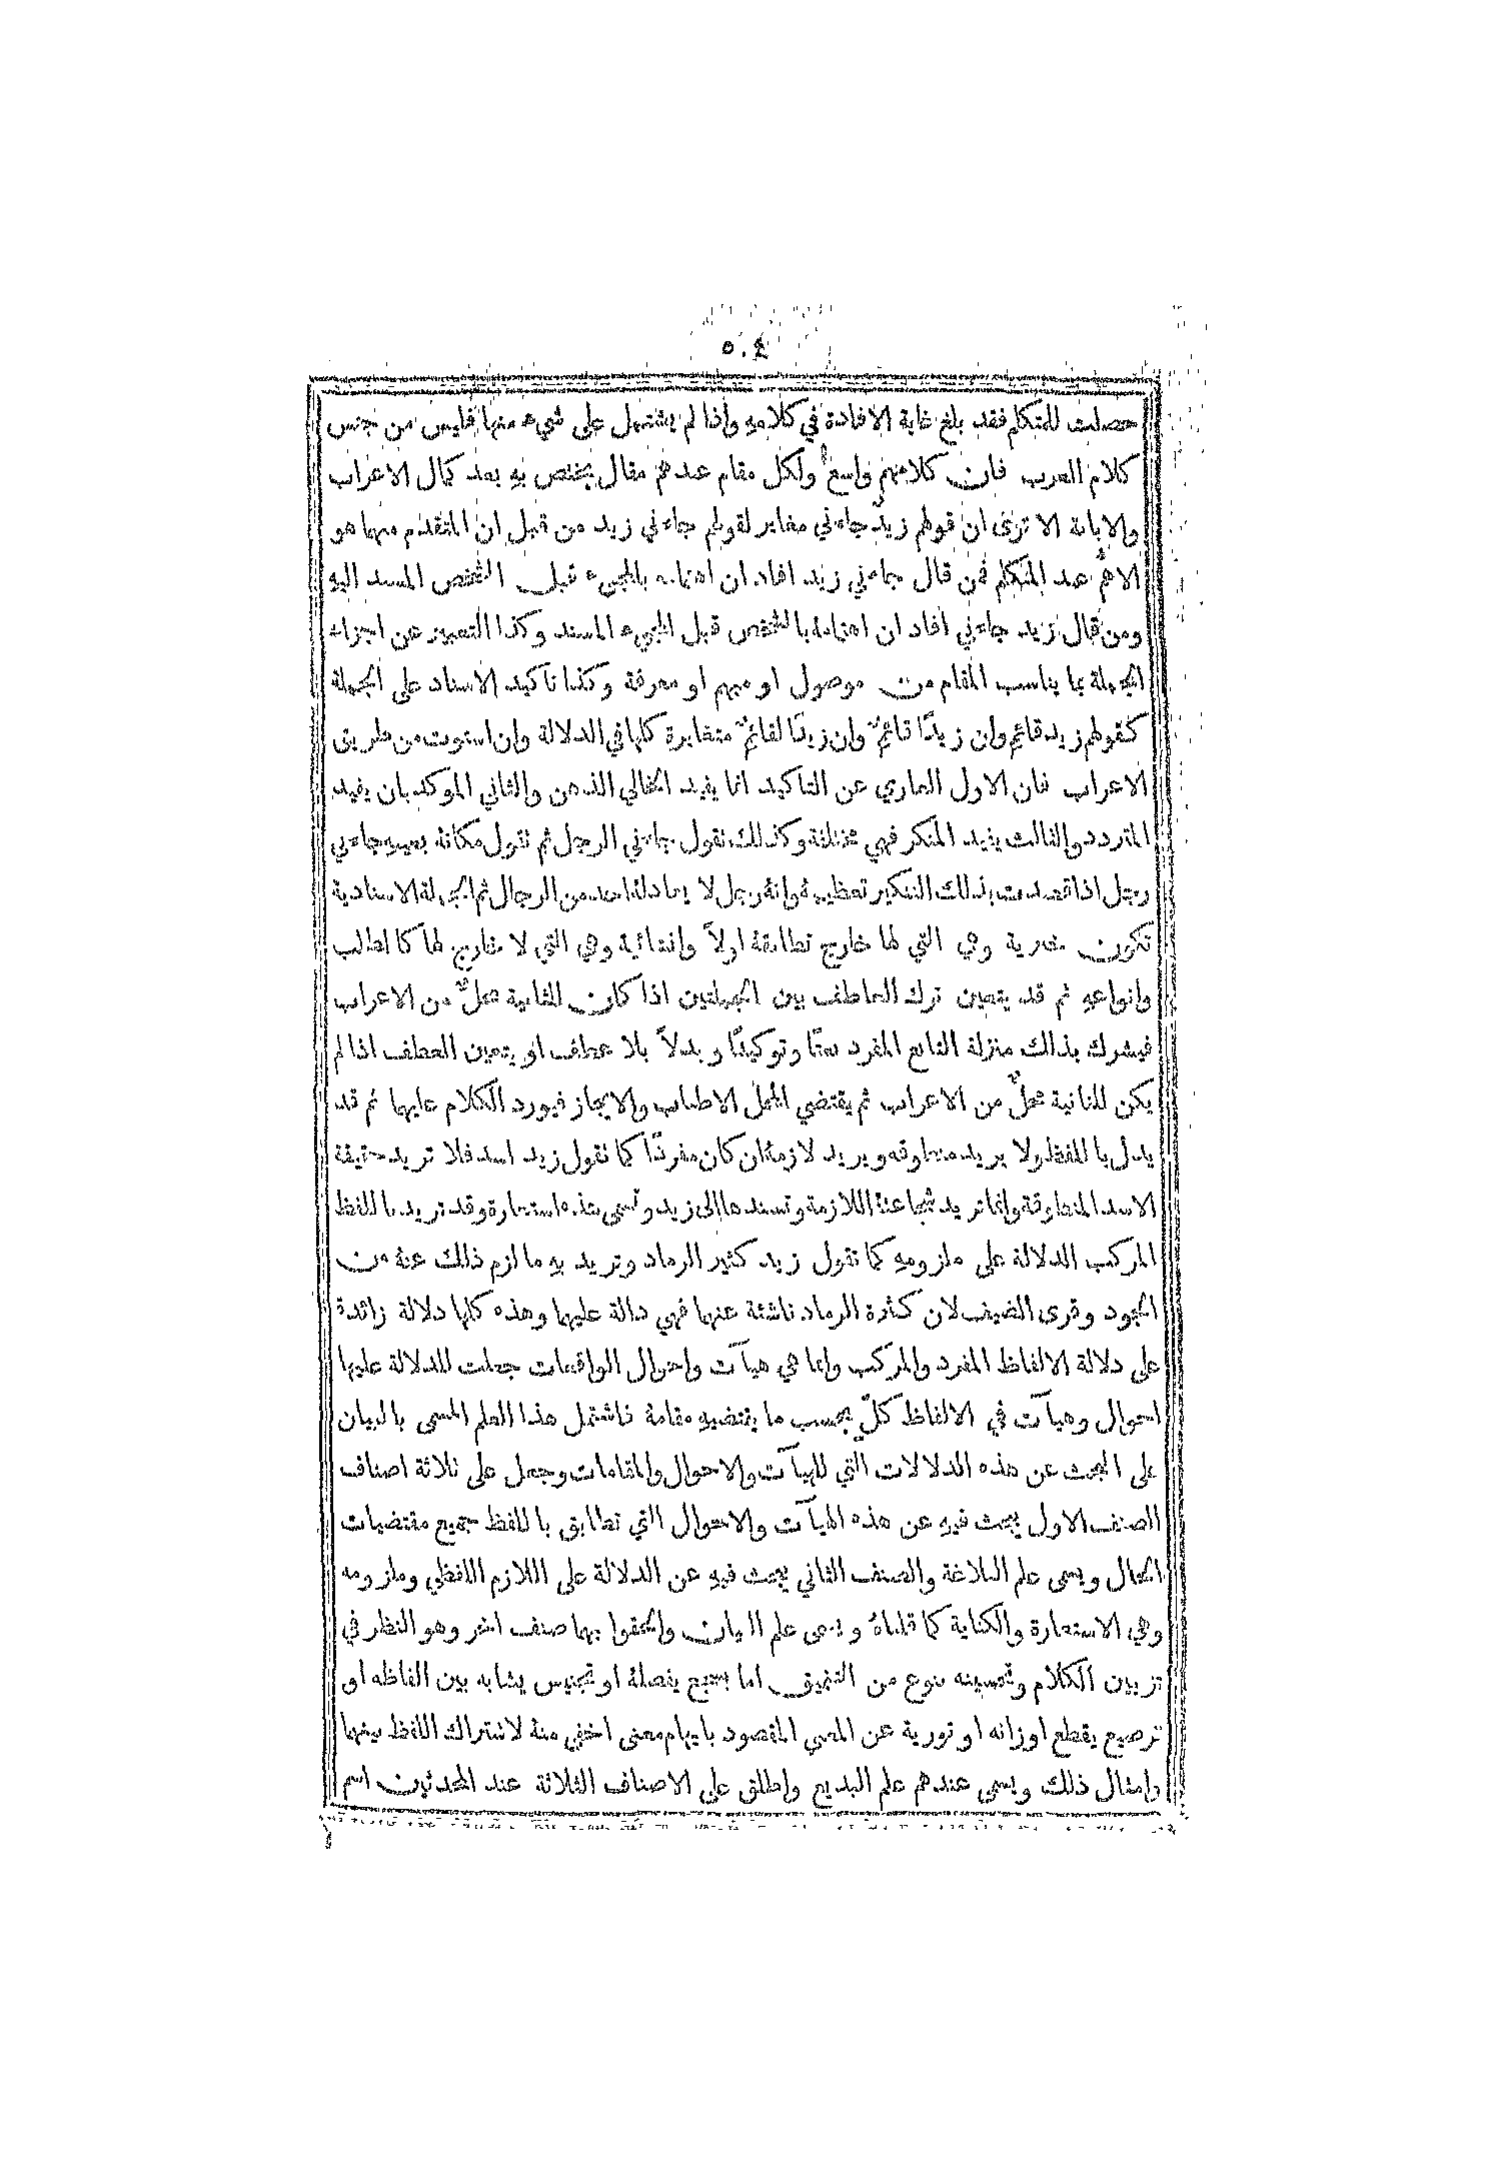 ٥٠٤
حصلت للمتكلم فقد بلغ غاية الافادة في كلامهِ واذا لم يشتمل على شيء منها فليس من جنس
كلام العرب فان كلامهم واسعٌ ولكل مقام عندهم مقال يختص بهِ بعد كمال الاعراب
والابانة الا ترى ان قولهم زيدٌ جاءني مغاير لقولهم جاءني زيد من قبل ان المتقدم منهما هو
الاهمُّ عند المتكلم فمن قال جاءني زيد افاد ان اهتمامه بالمجيء قبل الشخص المسند اليهِ
ومن قال زيد جاءني افاد ان اهتمامهُ بالشخص قبل المجيء المسند وكذا التعبير عن اجزاء
الجملة بما يناسب المقام من موصول او مبهم او معرفة وكذا تاكيد الاسناد على الجملة
كقولهم زيد قائم وان زيدًا قائمٌ وان زيدًا لقائمٌ متغايرة كلها في الدلالة وان استوت من طريق
الاعراب فان الاول العاري عن التاكيد انما يفيد الخالي الذهن والثاني الموكد بان يفيد
المتردد والثالث يفيد المنكر فهي مختلفة وكذلك تقول جاءني الرجل ثم تقول مكانهُ بعينهِ جاءني
رجل اذا قصدت بذلك التنكير تعظيمهُ وانهُ رجل لا يعادلهُ احد من الرجال ثم الجملة الاسنادية
تكون خبرية وهي التي لها خارج تطابقهُ اولاً وانشائية وهي التي لا خارج لها كالطلب
وانواعهِ ثم قد يتعين ترك العاطف بين الجملتين اذا كان للثانية محلٌّ من الاعراب
فيشرك بذلك منزلة التابع المفرد نعتًا وتوكيدًا وبدلاً بلا عطف او يتعين العطف اذا لم
يكن للثانية محلٌّ من الاعراب ثم يقتضي المحل الاطناب والايجاز فيورد الكلام عليهما ثم قد
يدل باللفظ ولا يريد منطوقه ويريد لازمهُ ان كان مفردًا كما تقول زيد اسد فلا تريد حقيقة
الاسد المنطوقة وانما تريد شجاعتهُ اللازمة وتسندها الى زيد وتسمى هذه استعارة وقد تريد باللفظ
المركب الدلالة على ملزومهِ كما تقول زيد كثير الرماد وتريد بهِ ما لزم ذلك عنهُ من
الجود وقرى الضيف لان كثرة الرماد ناشئة عنهما فهي دالة عليهما وهذه كلها دلالة زائدة
على دلالة الالفاظ المفرد والمركب وانما هي هيآت واحوال الواقعات جعلت للدلالة عليها
احوال وهيآت في الالفاظ كلٌّ بحسب ما يقتضيهِ مقامهُ فاشتمل هذا العلم المسمى بالبيان
على البحث عن هذه الدلالات التي للهيآت والاحوال والمقامات وجعل على ثلاثة اصناف
الصنف الاول يبحث فيهِ عن هذه الهيآت والاحوال التي تطابق باللفظ جميع مقتضيات
الحال ويسمى علم البلاغة والصنف الثاني يبحث فيهِ عن الدلالة على اللازم اللفظي وملزومه
وهي الاستعارة والكناية كما قلناهُ ويسمى علم البيان والحقوا بهما صنف اخر وهو النظر في
تزيين الكلام وتحسينه بنوع من التنميق اما بسجع يفصلهُ او تجنيس يشابه بين الفاظه او
ترصيع يقطع اوزانه او تورية عن المعنى المقصود بايهام معنى اخفى منهُ لاشتراك اللفظ بينهما
وامثال ذلك ويسمى عندهم علم البديع واطلق على الاصناف الثلاثة عند المحدثين اسم